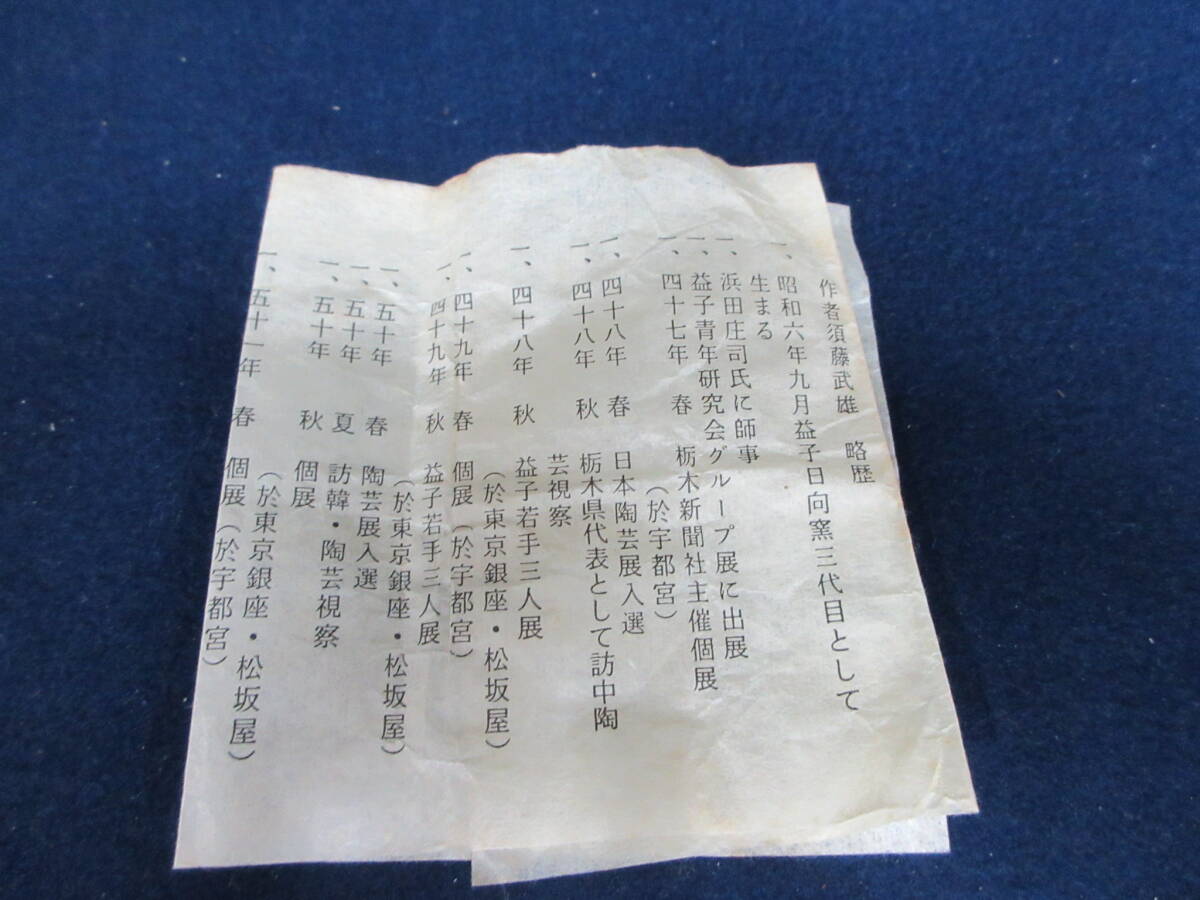 作者須藤武雄　略歴
一、昭和六年九月益子日向窯三代目として
生まる
一、浜田庄司氏に師事
一、益子青年研究会グループ展に出展
一、四十七年　春　栃木新聞社主催個展
（於宇都宮）
一、四十八年　春　日本陶芸展入選
一、四十八年　秋　栃木県代表として訪中陶
芸視察
一、四十八年　秋　益子若手三人展
（於東京銀座・松坂屋）
一、四十九年　春　個展（於宇都宮）
一、四十九年　秋　益子若手三人展
（於東京銀座・松坂屋）
一、五十年　春　陶芸展入選
一、五十年　夏　訪韓・陶芸視察
一、五十年　秋　個展
（於東京銀座・松坂屋）
一、五十一年　春　個展（於宇都宮）